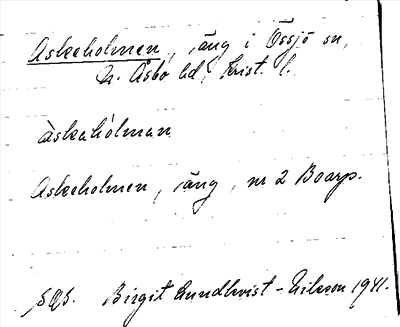 Askeholmen, äng i Össjö sn,
N. Åsbo hd, Krist. l.
àskahólman
Askeholmen, äng, nr 2 Boarp.
Birgit Lundkvist-Nilsson 1941.